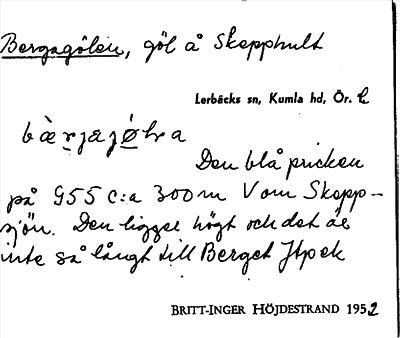 Bergagölen, göl å Skepphult
Lerbäcks sn, Kumla hd, Ör. l.
bæ̀r̯jagø̀lva
Den blå pricken
på G55 c:a 300 m V om Skepp-
sjön. Den ligger högt och det är
inte så långt till Berget
BRITT-INGER HÖJDESTRAND 1952